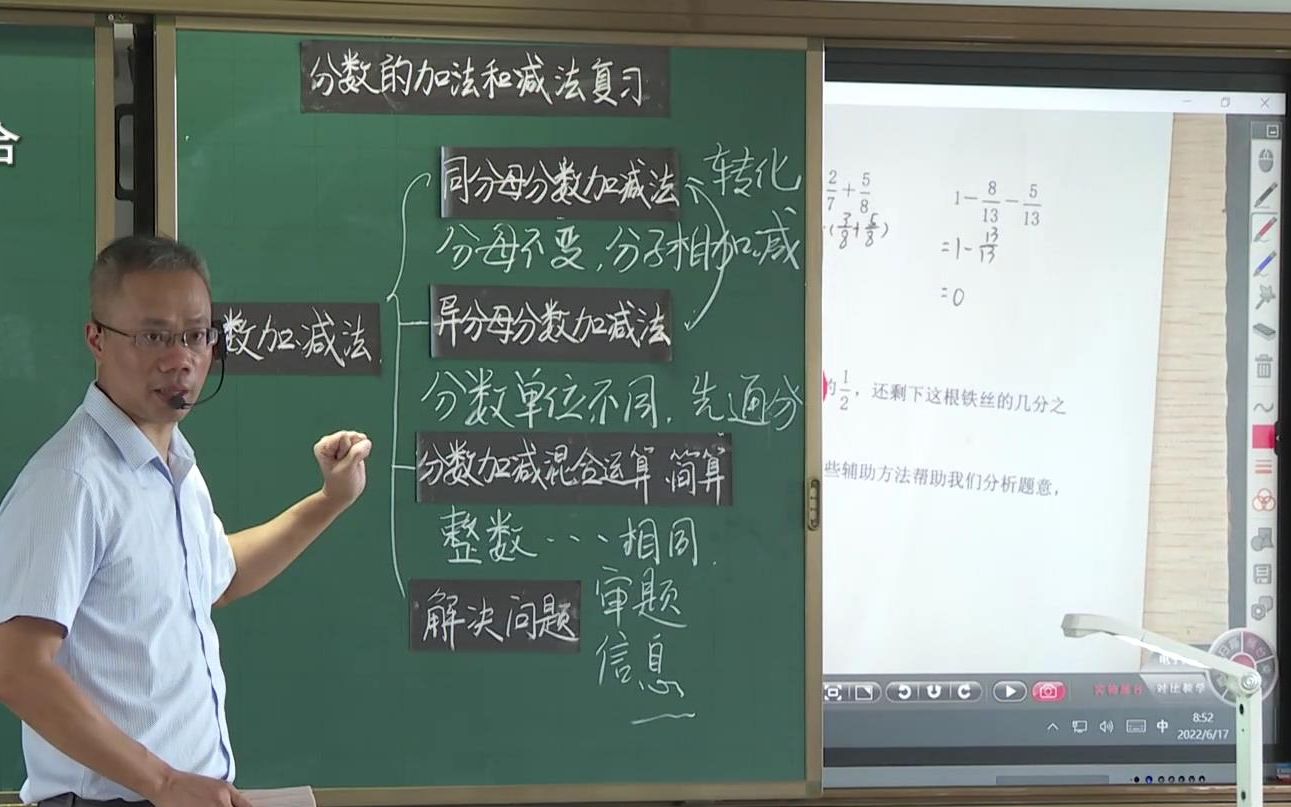 分数的加法和减法复习
同分母分数加减法
转化
分母不变，分子相加减
数加减法
异分母分数加减法
分数单位不同，先通分
分数加减混合运算 简算
整数···相同
解决问题
审题
信息
2/7+5/8
(3/8+5/8)
1-8/13-5/13
=1-13/13
=0
的1/2，还剩下这根铁丝的几分之
些辅助方法帮助我们分析题意，
对比教学
中
8:52
2022/6/17